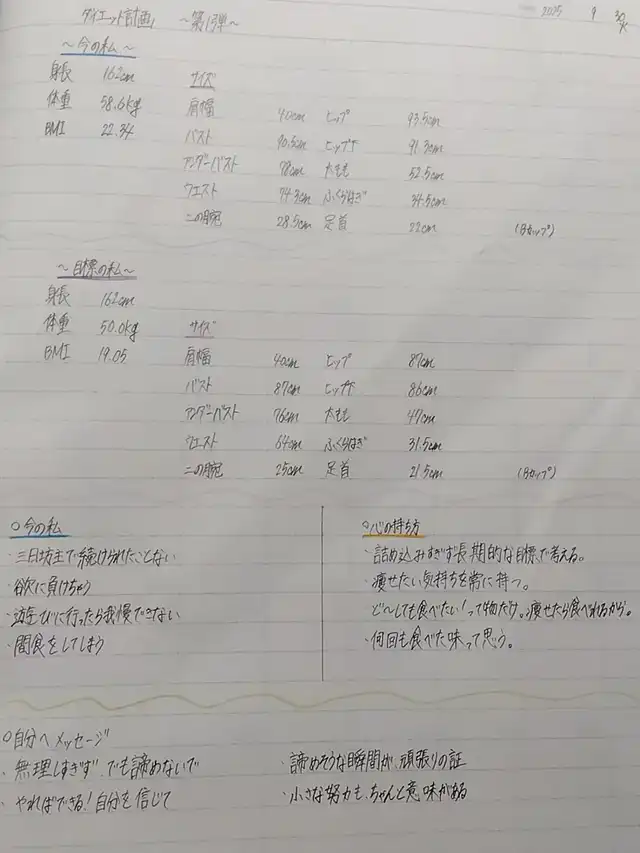 ダイエット計画 ～第1弾～ 2025 9 30 火
～今の私～
身長 162cm サイズ
体重 58.6kg 肩幅 40cm ヒップ 93.5cm
BMI 22.34 バスト 90.5cm ヒップ下 91.3cm
アンダーバスト 78cm 太もも 52.5cm
ウエスト 74.3cm ふくらはぎ 34.5cm
二の腕 28.5cm 足首 22cm (Bカップ)
～目標の私～
身長 162cm
体重 50.0kg サイズ
BMI 19.05 肩幅 40cm ヒップ 87cm
バスト 87cm ヒップ下 86cm
アンダーバスト 76cm 太もも 47cm
ウエスト 64cm ふくらはぎ 31.5cm
二の腕 25cm 足首 21.5cm (Bカップ)
○今の私
・三日坊主で続けられたことない
・欲に負けちゃう
・遊びに行ったら我慢できない
・間食をしてしまう
○心の持ち方
・詰め込みすぎず長期的な目標で考える。
・痩せたい気持ちを常に持つ。
・ど～しても食べたい!って物だけ。痩せたら食べれるから。
・何回も食べた味って思う。
○自分へメッセージ
・無理しすぎず、でも諦めないで
・やればできる!自分を信じて
・諦めそうな瞬間が、頑張りの証
・小さな努力も、ちゃんと意味がある